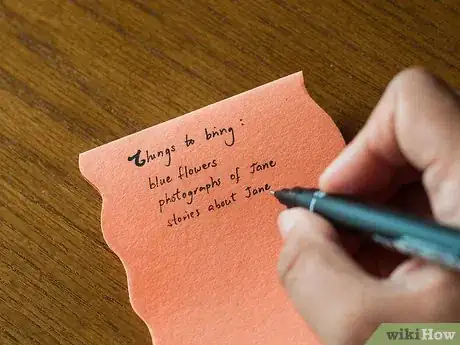 Things to bring:
blue flowers
photographs of Jane
stories about Jane
wikiHow